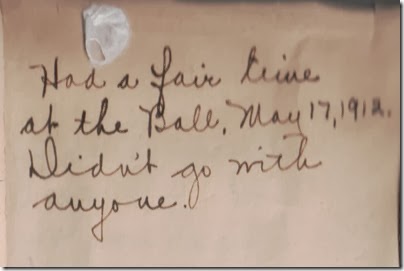 Had a fair time
at the Ball, May 17, 1912.
Didn't go with
anyone.